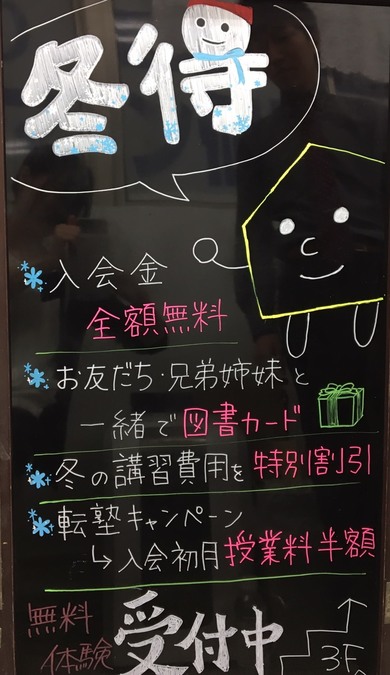 冬得
入会金
全額無料
お友だち・兄弟姉妹と
一緒で図書カード
冬の講習費用を特別割引
転塾キャンペーン
↳入会初月授業料半額
無料
体験
受付中
3F